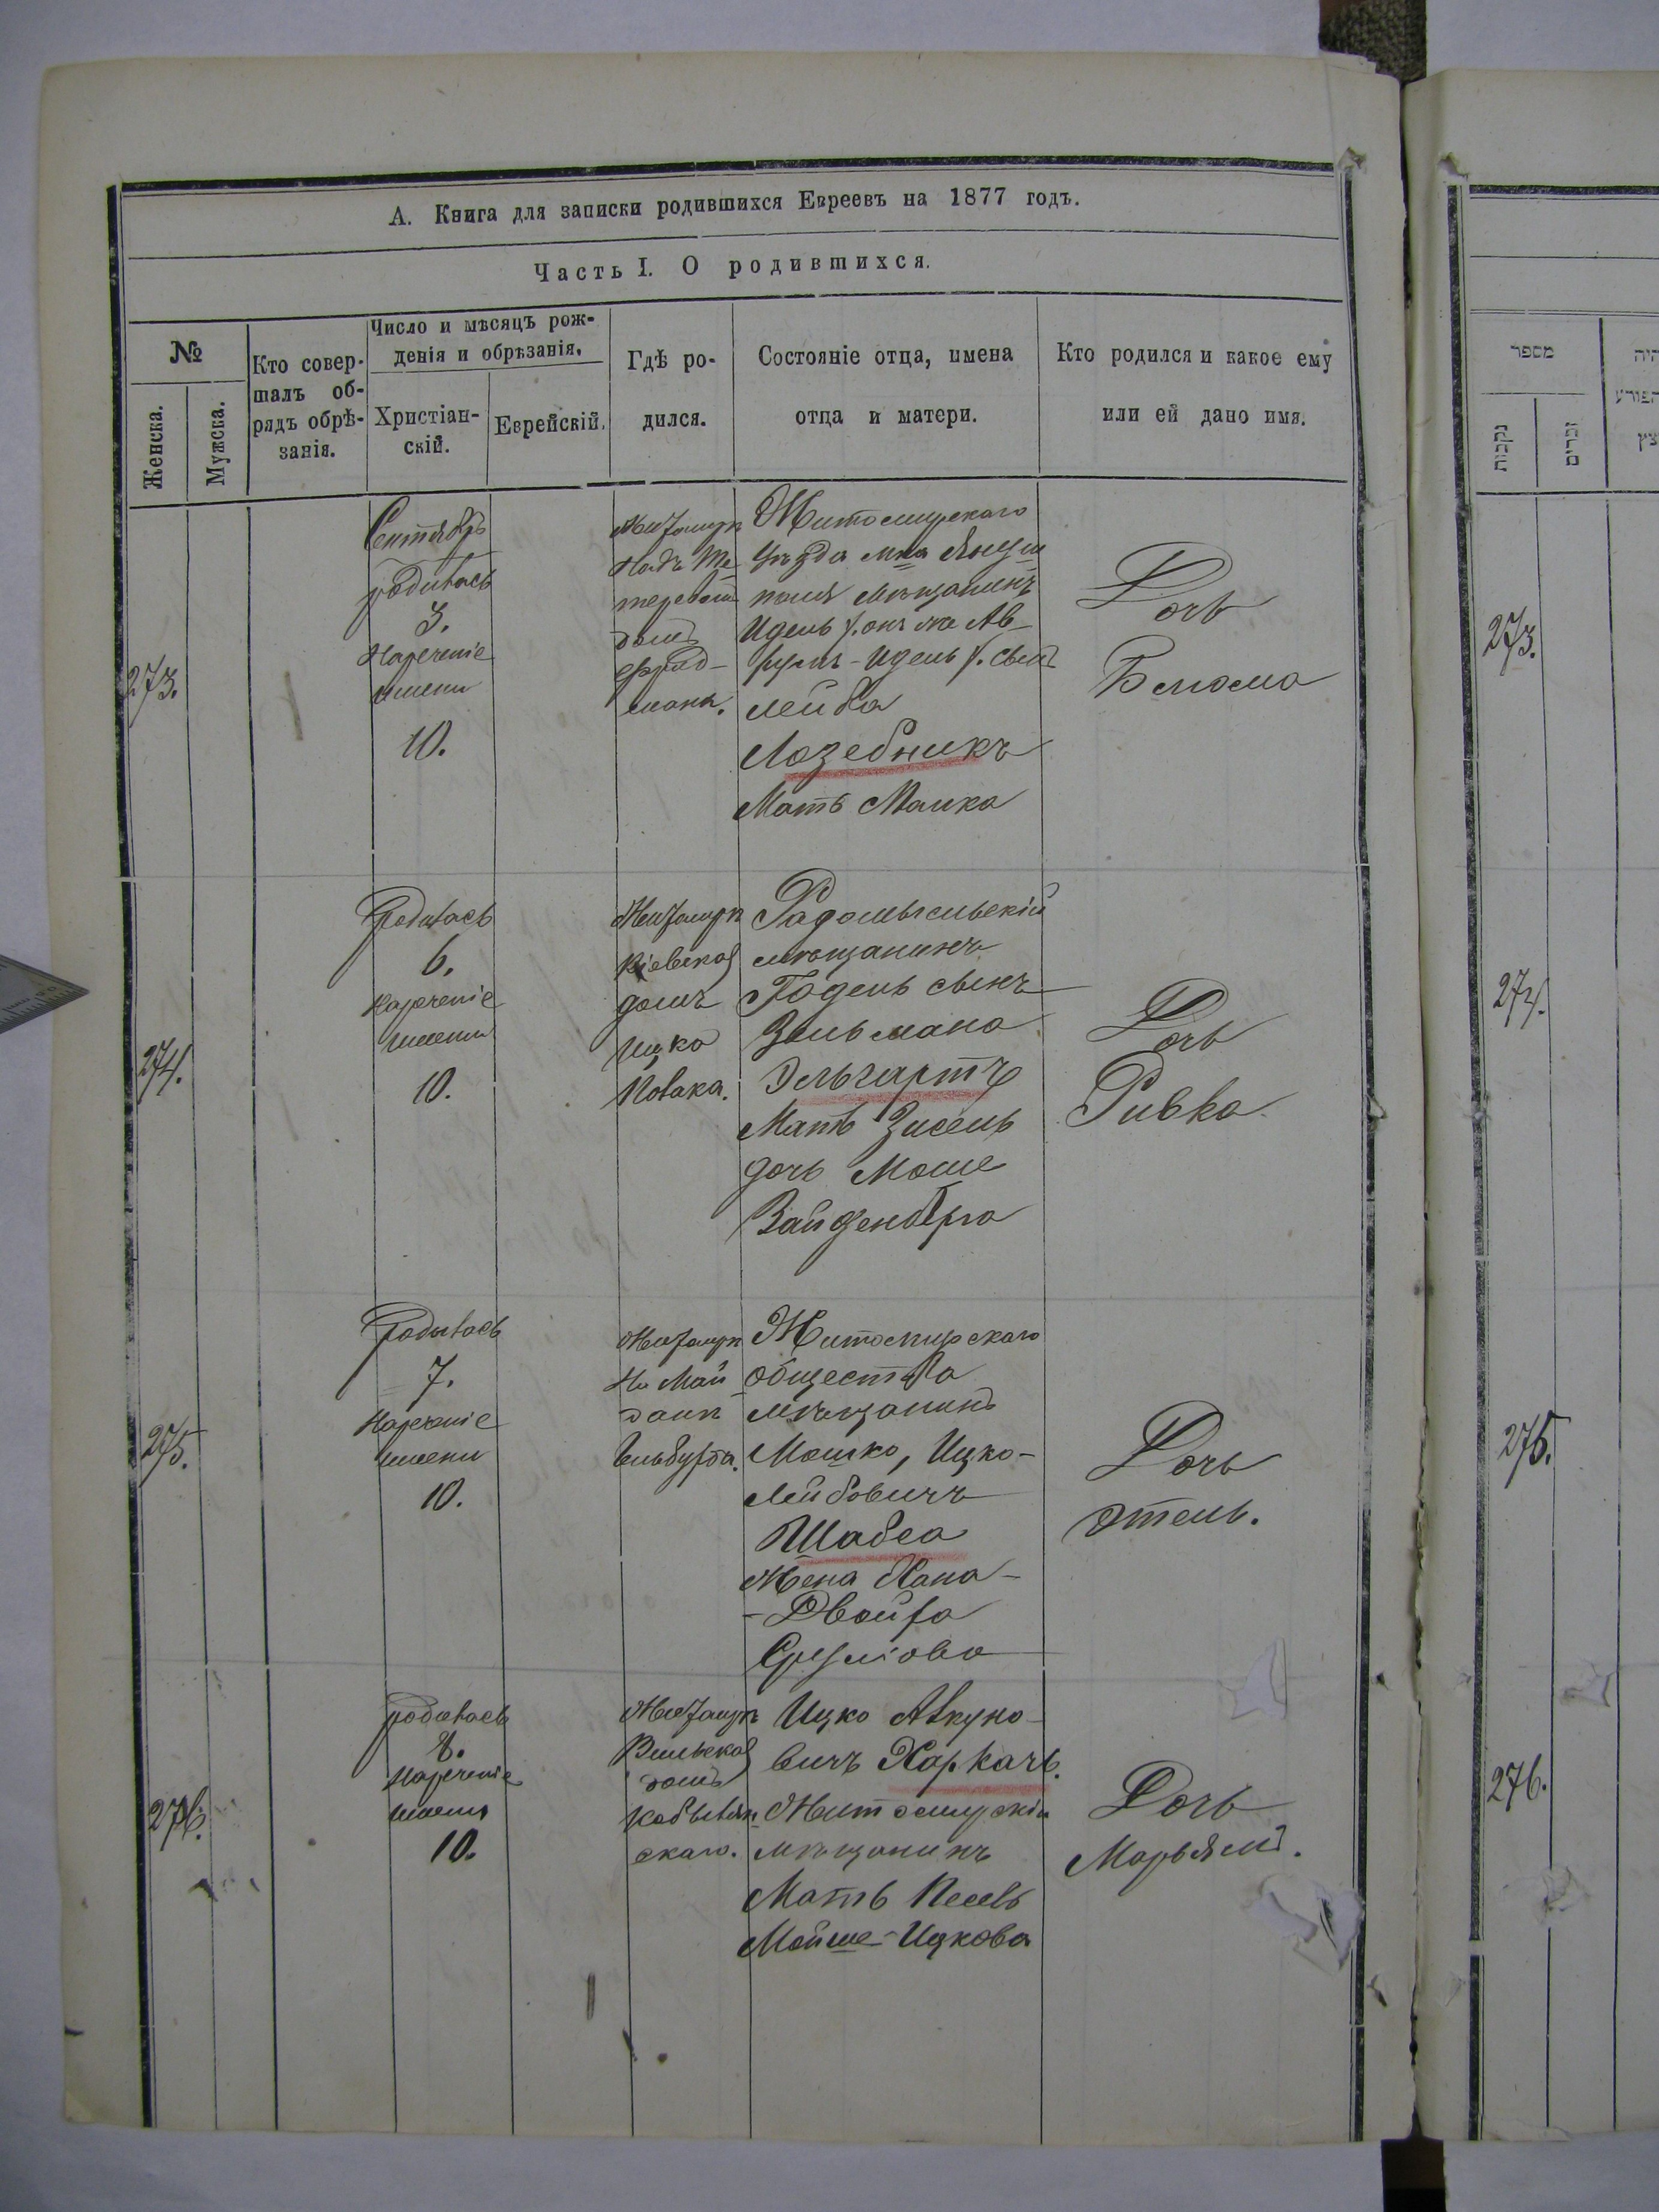 А. Книга для записки родившихся Евреевъ на 1877 годъ.
Часть I. О родившихся.
№
Женска.
Мужска.
Кто совер-
шалъ об-
рядъ обрѣ-
занія.
Число и мѣсяцъ рож-
денія и обрѣзанія.
Христіан-
скій.
Еврейскій.
Гдѣ ро-
дился.
Состояніе отца, имена
отца и матери.
Кто родился и какое ему
или ей дано имя.
273.
Сентябрь
родилась
3.
Нареченіе
имени
10.
Житомир
Надъ Те
теревом
домъ
Фрид-
мана.
Житомирскаго
уѣзда мка Януш
поля мѣщанинъ
Идель /:онъ же Ав-
румъ-Идель/: сынъ
Лейба
Лозебникъ
Мать Малка
Дочь
Блюма
274.
Родилась
6.
нареченіе
имени
10.
Житомир
Кіевской
домъ
Ицка
Новака.
Радомысльскій
мѣщанинъ
Годель сынъ
Зельмана
Эльгартъ
Мать Зисель
дочь Моше
Вайденберга
Дочь
Ривка
275.
Родилась
7.
Нареченіе
имени
10.
Житомир
На Май
данѣ
Гельбурта.
Житомирскаго
общества
мѣщанинъ
Мошко, Ицко-
Лейбовичъ
Шабса
Жена Хана-
-Двойра
Срулiова
Дочь
Этель.
276.
родилась
8.
Нареченіе
имени
10.
Житомир
Вильской
домъ
Кобылян
скаго.
Ицко Авкуно-
вичъ Харкачъ.
Житомирскій
мѣщанинъ
Мать Песель
Мойше-Ицкова
Дочь
Марьямъ.
מספר
נקבות
זכרים
273.
274.
275.
276.